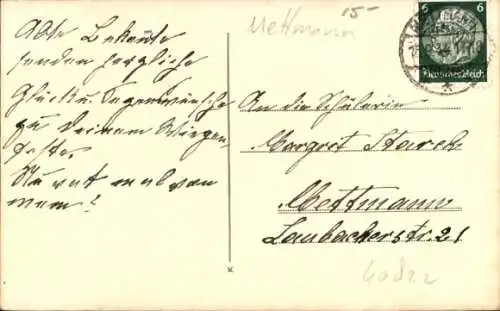 Alte Bekannte
senden herzliche
Glück u. Segenswünsche
zu Deinem Wiegen-
feste.
Nu rat mal von
wem?
Mettmann 15-
6 6
Deutsches Reich
An die Schülerin
Margret Starck
Mettmann
Laubacherstr. 21